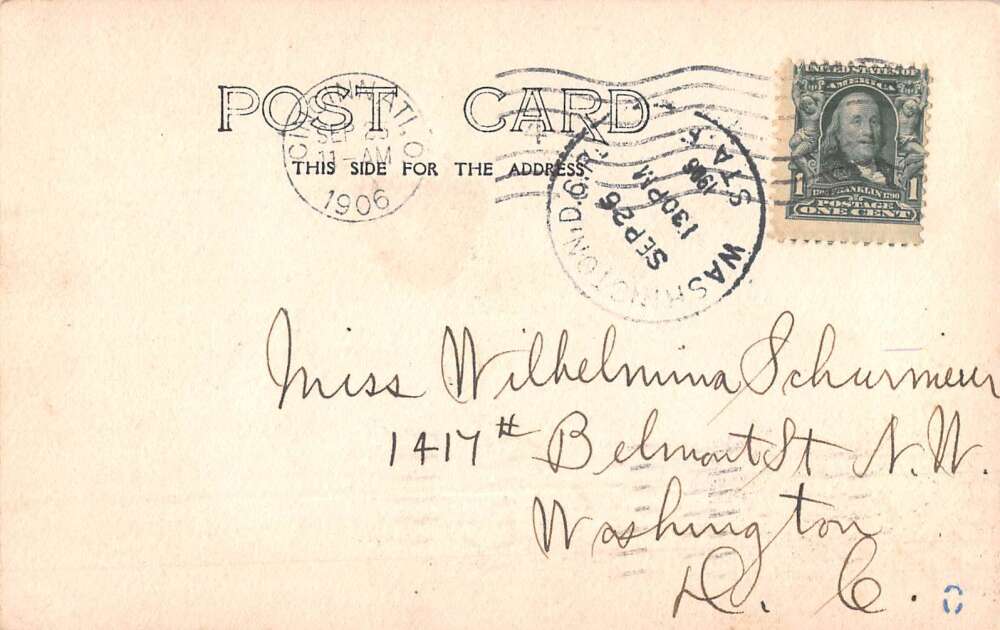 POST CARD
THIS SIDE FOR THE ADDRESS
CINCINNATI, O.
SEP
11-AM
1906
4
WASHINGTON, D.C.
SEP 26
1 30 PM
1906
STA.
UNITED STATES OF
AMERICA
1 FRANKLIN 1790 1
POSTAGE
ONE CENT
Miss Wilhelmina Schurmeier
1417 # Belmont St N.W.
Washington
D. C.